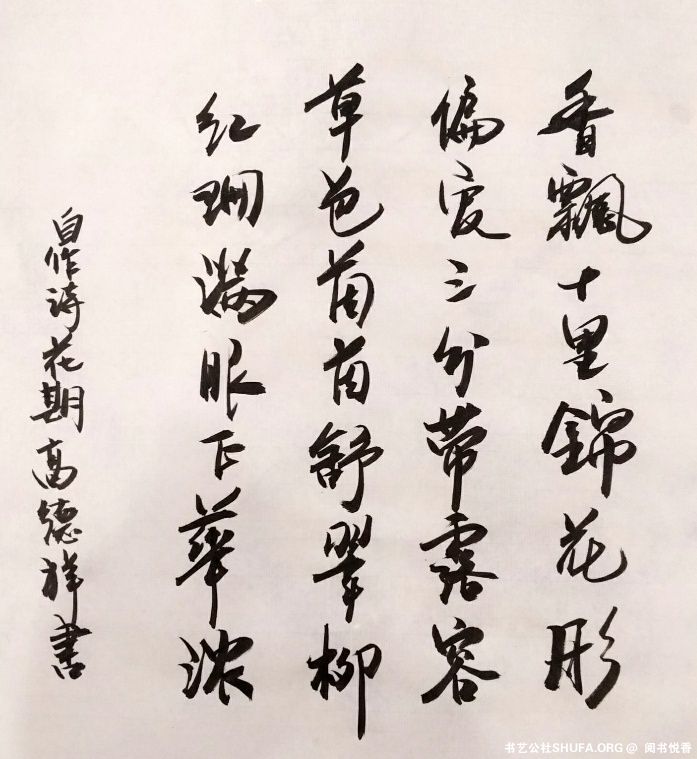 香飘十里錦花彤
偏爱三分带露容
草色茵茵舒翠柳
红珊满眼正華浓
自作诗花期高德祥書
书艺公社SHUFA.ORG @ 阅书悦香